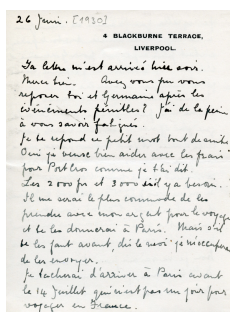 26 Juin. [1930]
4 BLACKBURNE TERRACE,
LIVERPOOL.
Ta lettre m'est arrivée hier soir.
Merci bien. Avez vous pu vous
reposer toi et Germaine après les
événements pénibles? J'ai de la peine
à vous savoir fatigués.
Je te répond ce petit mot tout de suite
Oui je veux bien aider avec les frais
pour Port Cros comme je t'ai dit.
Les 2000 frs et 3000 s'il y a besoin.
Il me serai le plus commode de les
prendre avec mon argent pour le voyage
et te les donnerai à Paris. Mais s'il
te les faut avant, dis le moi je m'occuperai
de les envoyer.
Je tacherai d'arriver à Paris avant
le 14 Juillet qui n'est pas un jour pour
voyager en France.